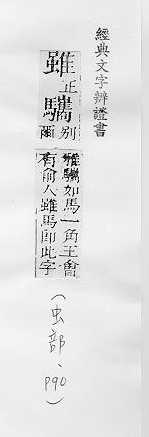 經典文字辨證書
雖正
驨別
爾
雖驨如馬一角王會
有俞人雖馬卽此字
(虫部、p90)